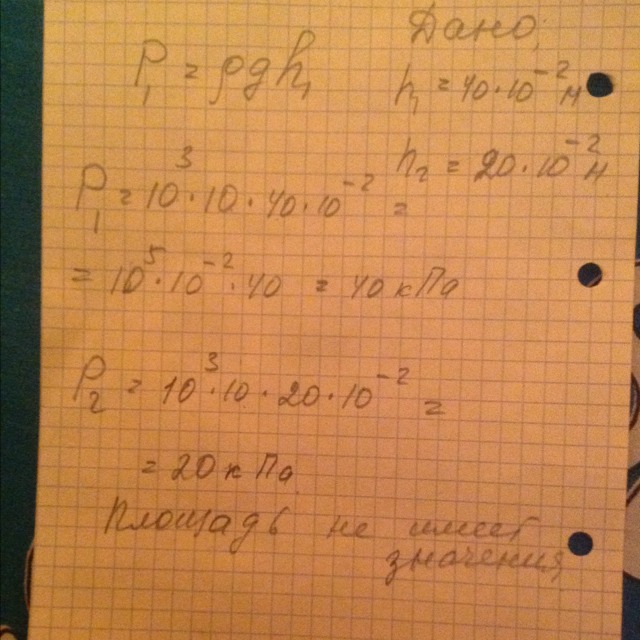 Дано:
P₁ = ρgh₁
h₁ = 40·10⁻² м
h₂ = 20·10⁻² м
P₁ = 10³·10·40·10⁻² =
= 10⁵·10⁻²·40 = 40 кПа
P₂ = 10³·10·20·10⁻² =
= 20 кПа
Площадь не имеет
значения